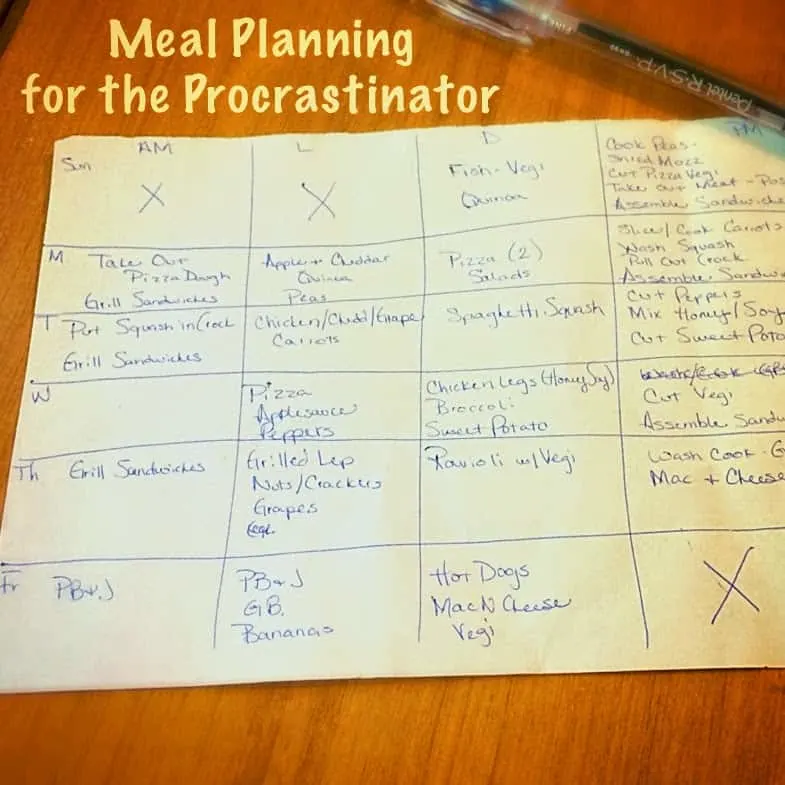 Meal Planning
for the Procrastinator
Pentel R.S.V.P. FINE
AM
L
D
PM
Sun
X
X
Fish - Vegi
Quinoa
Cook Peas -
Shred Mozz
Cut Pizza Vegi
Take Out Meat -
Assemble Sandwiches
M
Take Out
Pizza Dough
Grill Sandwiches
Apple + Cheddar
Quinoa
Peas
Pizza (2)
Salads
Slice/Cook Carrots
Wash Squash
Pull Out Crock
Assemble
T
Put Squash in Crock
Grill Sandwiches
Chicken/Chedd/Grape
Carrots
Spaghetti Squash
Cut Peppers
Mix Honey/Soy
Cut Sweet
W
Pizza
Applesauce
Peppers
Chicken Legs (Honey Soy)
Broccoli
Sweet Potato
Cut Vegi
Assemble
Th
Grill Sandwiches
Grilled
Nuts/Crackers
Grapes
Ravioli w/Vegi
Wash Cook -
Mac + Cheese
Fr
PB+J
PB+J
G.B.
Bananas
Hot Dogs
Mac N Cheese
Vegi
X